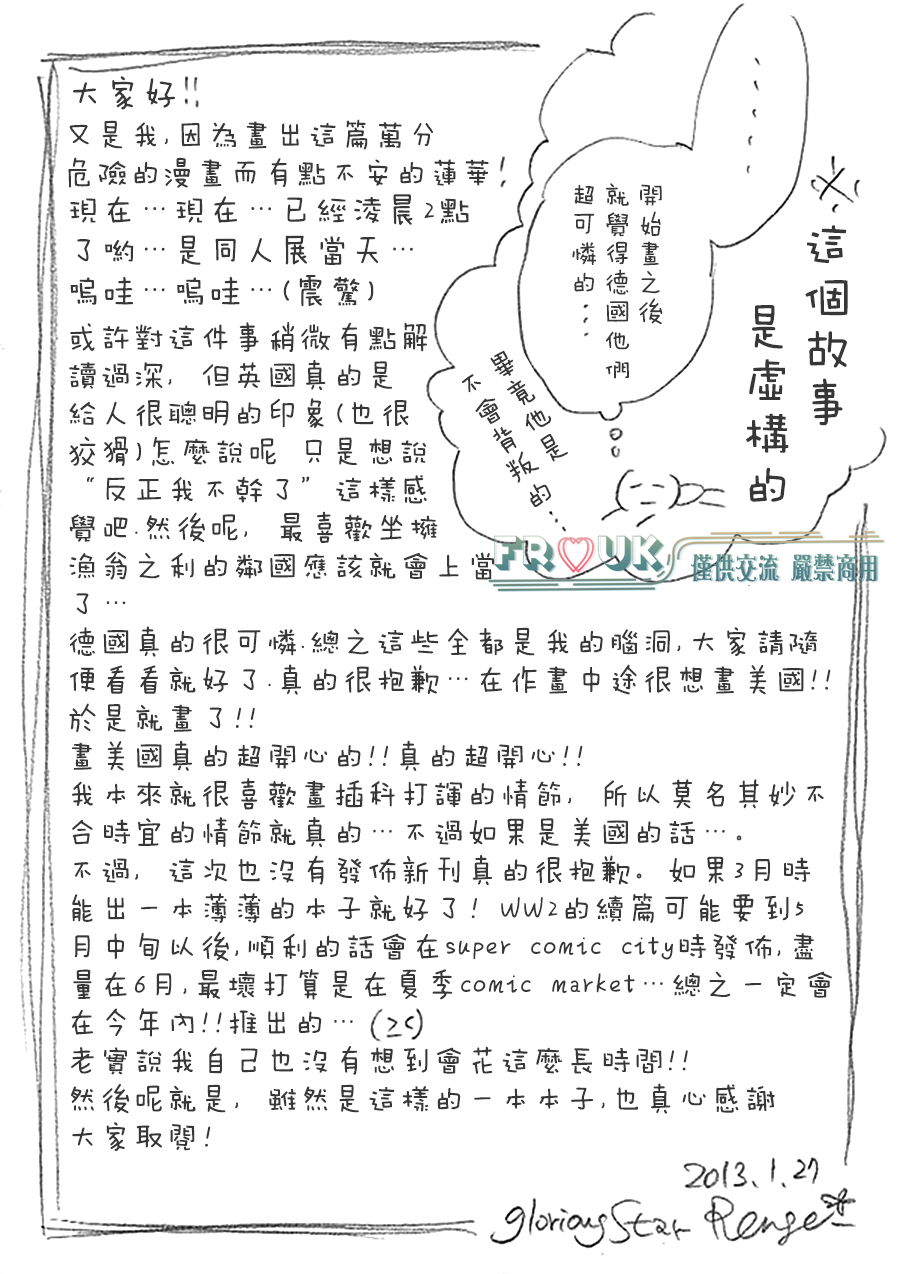 大家好!!
又是我,因為畫出這篇萬分
危險的漫畫而有點不安的蓮華!
現在…現在…已經淩晨2點
了喲…是同人展當天…
嗚哇…嗚哇…(震驚)
或許對這件事稍微有點解
讀過深, 但英國真的是
給人很聰明的印象(也很
狡猾)怎麼說呢 只是想說
“反正我不幹了” 這樣感
覺吧.然後呢, 最喜歡坐擁
漁翁之利的鄰國應該就會上當
了…
德國真的很可憐.總之這些全都是我的腦洞,大家請隨
便看看就好了.真的很抱歉…在作畫中途很想畫美國!!
於是就畫了!!
畫美國真的超開心的!!真的超開心!!
我本來就很喜歡畫插科打諢的情節, 所以莫名其妙不
合時宜的情節就真的…不過如果是美國的話…。
不過, 這次也沒有發佈新刊真的很抱歉。如果3月時
能出一本薄薄的本子就好了! WW2的續篇可能要到5
月中旬以後,順利的話會在super comic city時發佈,盡
量在6月,最壞打算是在夏季comic market…總之一定會
在今年內!!推出的…(≧<)
老實說我自己也沒有想到會花這麼長時間!!
然後呢就是, 雖然是這樣的一本本子,也真心感謝
大家取閱!
※這個故事
是虛構的
......
開始畫之後
就覺得德國他們
超可憐的...
畢竟他是
不會背叛的...
FR♡UK
僅供交流 嚴禁商用
2013.1.27
glorious Star Renge*